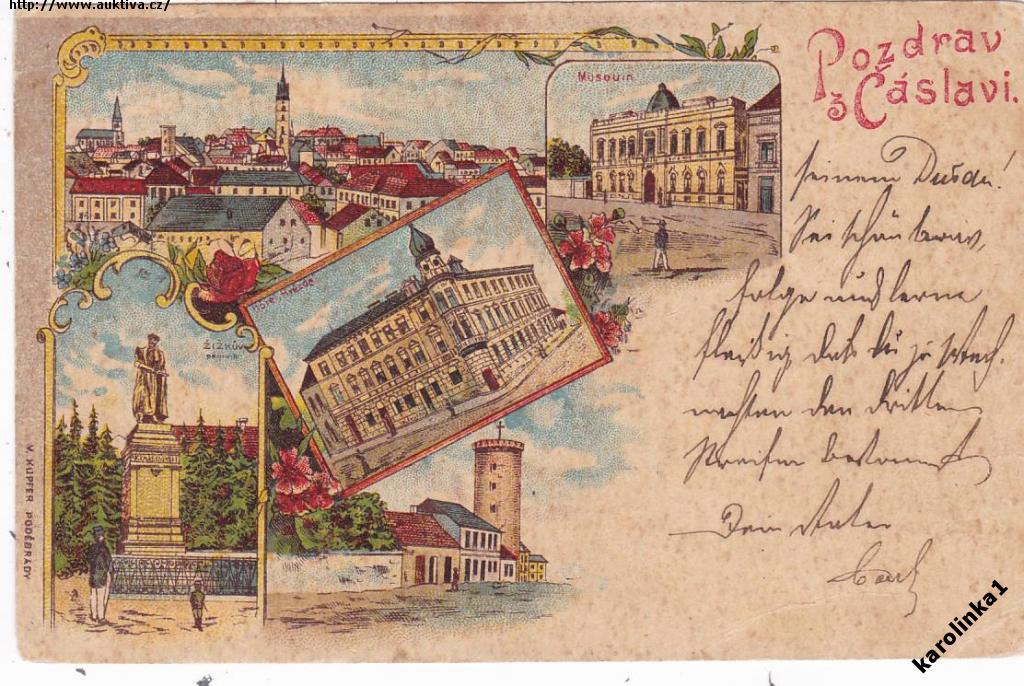 http://www.auktiva.cz/
Pozdrav
z Čáslavi.
Museum
ŽIŽKŮV
pomník
K. KUPFER PODĚBRADY
seinem
Sei schön brav,
folge und lerne
fleißig daß du zu Weih-
nachten den dritten
bekommst
Dein Vater
karolinka1